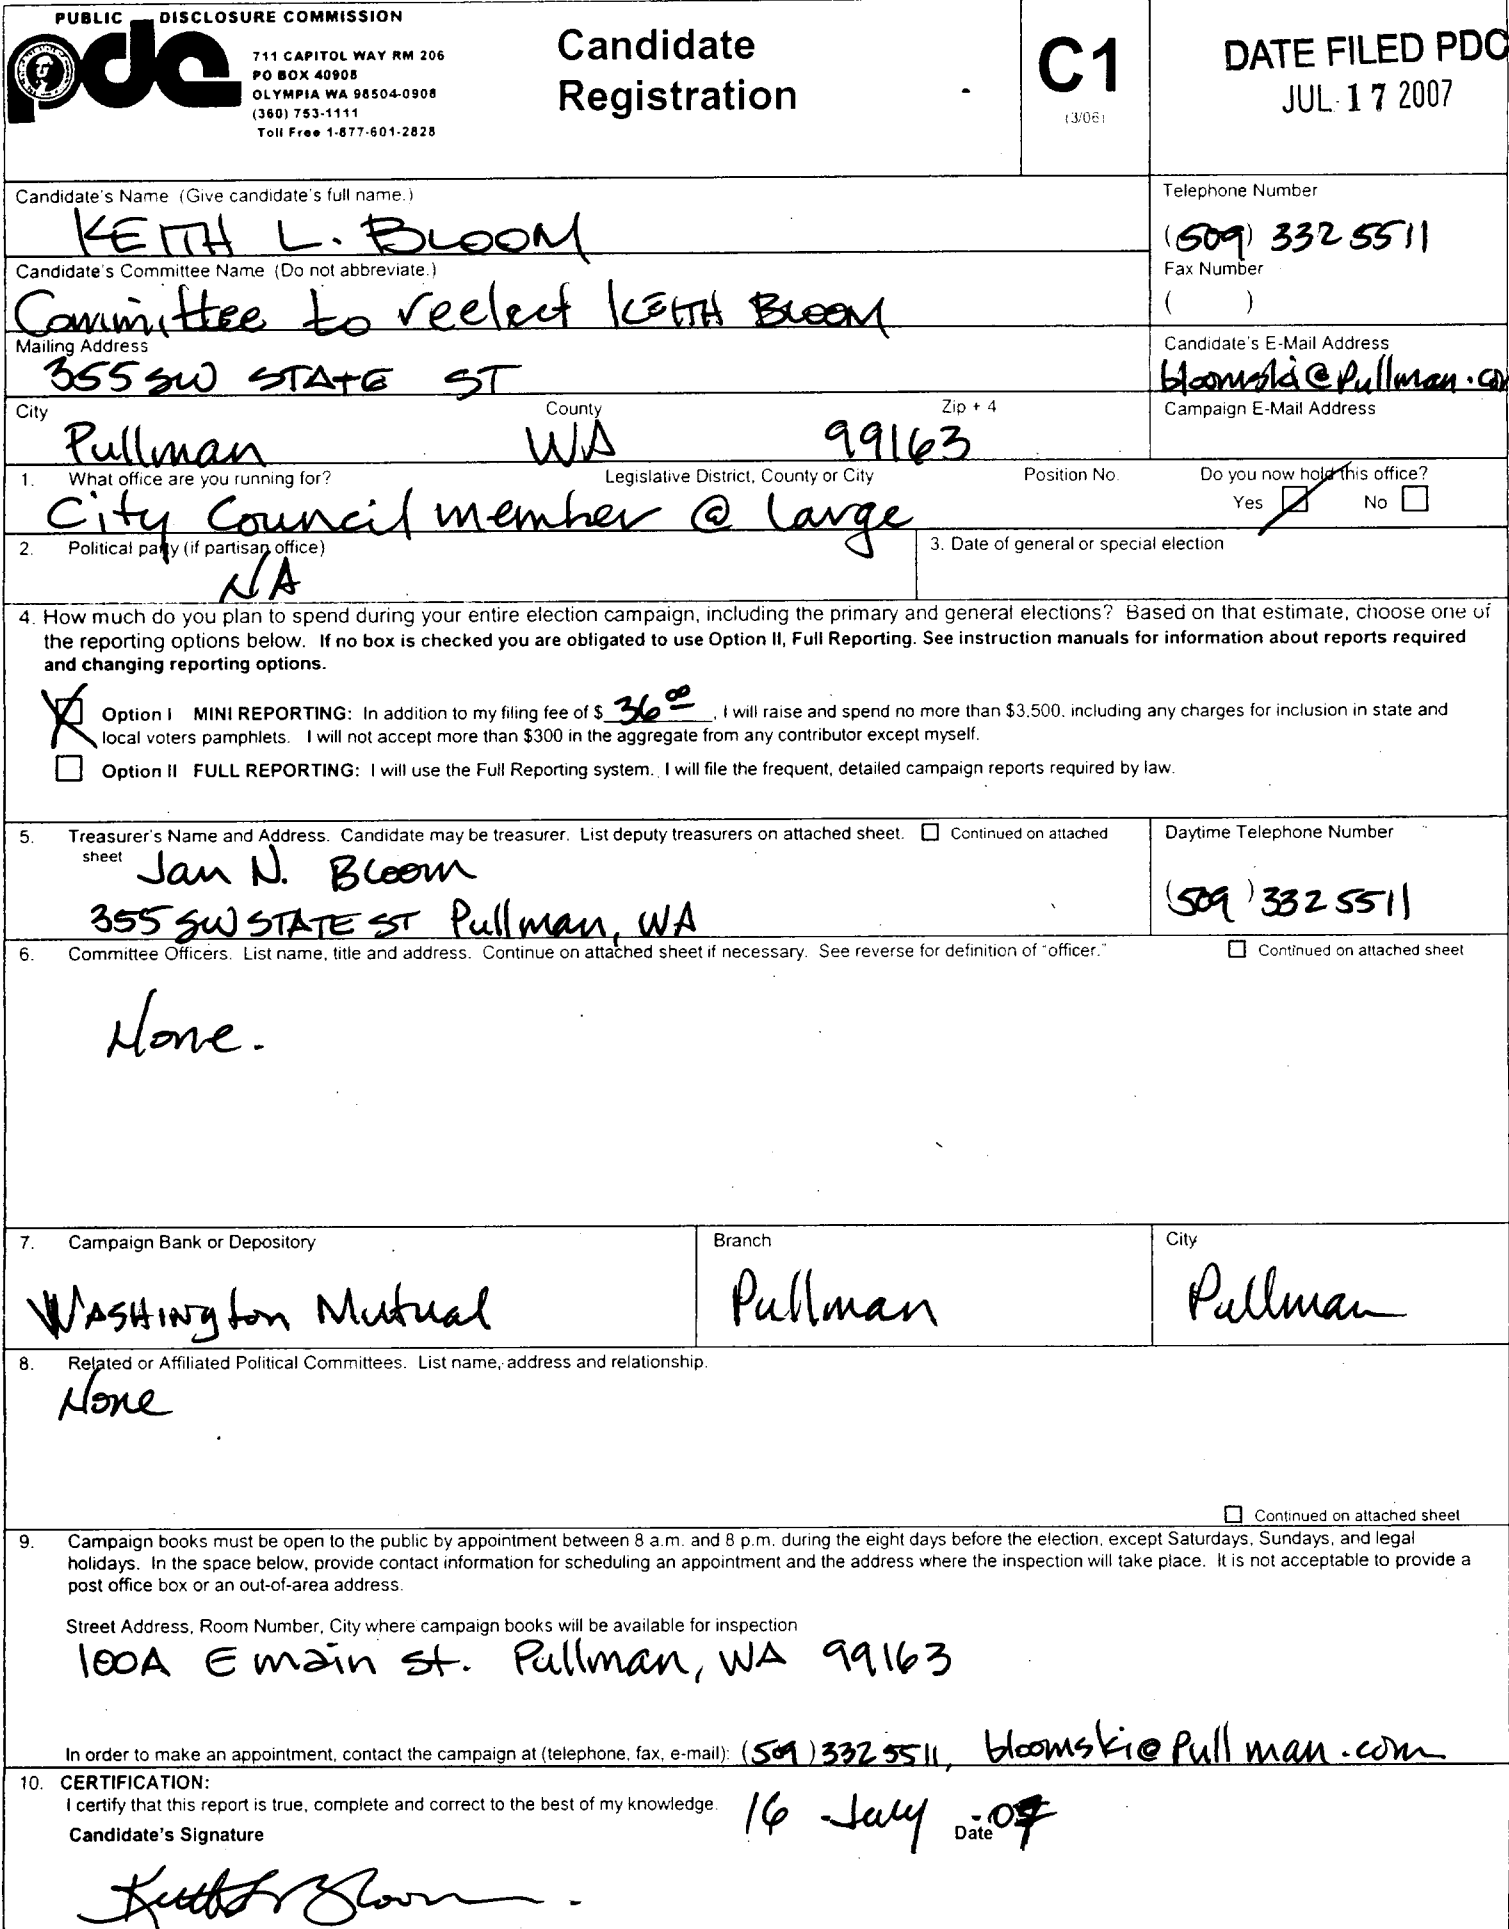 PUBLIC DISCLOSURE COMMISSION
pdc
711 CAPITOL WAY RM 206
PO BOX 40908
OLYMPIA WA 98504-0908
(360) 753-1111
Toll Free 1-877-601-2828
Candidate
Registration
C1
(3/06)
DATE FILED PDC
JUL 17 2007
Candidate's Name (Give candidate's full name.)
KEITH L. BLOOM
Telephone Number
(509) 332 5511
Candidate's Committee Name (Do not abbreviate.)
Committee to reelect KEITH BLOOM
Fax Number
( )
Mailing Address
355 SW STATE ST
Candidate's E-Mail Address
bloomski@Pullman.com
City County Zip + 4
Pullman WA 99163
Campaign E-Mail Address
1. What office are you running for? Legislative District, County or City Position No.
City Council member @ large
Do you now hold this office?
Yes No
2. Political party (if partisan office)
NA
3. Date of general or special election
4. How much do you plan to spend during your entire election campaign, including the primary and general elections? Based on that estimate, choose one of
the reporting options below. If no box is checked you are obligated to use Option II, Full Reporting. See instruction manuals for information about reports required
and changing reporting options.
Option I MINI REPORTING: In addition to my filing fee of $ 36 00, I will raise and spend no more than $3,500, including any charges for inclusion in state and
local voters pamphlets. I will not accept more than $300 in the aggregate from any contributor except myself.
Option II FULL REPORTING: I will use the Full Reporting system. I will file the frequent, detailed campaign reports required by law.
5. Treasurer's Name and Address. Candidate may be treasurer. List deputy treasurers on attached sheet. Continued on attached
sheet
Jan N. Bloom
355 SW STATE ST Pullman, WA
Daytime Telephone Number
(509) 332 5511
6. Committee Officers. List name, title and address. Continue on attached sheet if necessary. See reverse for definition of "officer." Continued on attached sheet
None.
7. Campaign Bank or Depository
Washington Mutual
Branch
Pullman
City
Pullman
8. Related or Affiliated Political Committees. List name, address and relationship.
None
Continued on attached sheet
9. Campaign books must be open to the public by appointment between 8 a.m. and 8 p.m. during the eight days before the election, except Saturdays, Sundays, and legal
holidays. In the space below, provide contact information for scheduling an appointment and the address where the inspection will take place. It is not acceptable to provide a
post office box or an out-of-area address.
Street Address, Room Number, City where campaign books will be available for inspection
100A E main st. Pullman, WA 99163
In order to make an appointment, contact the campaign at (telephone, fax, e-mail): (509) 332 5511, bloomski@Pullman.com
10. CERTIFICATION:
I certify that this report is true, complete and correct to the best of my knowledge.
16 July -07
Candidate's Signature Date
Keith L Bloom